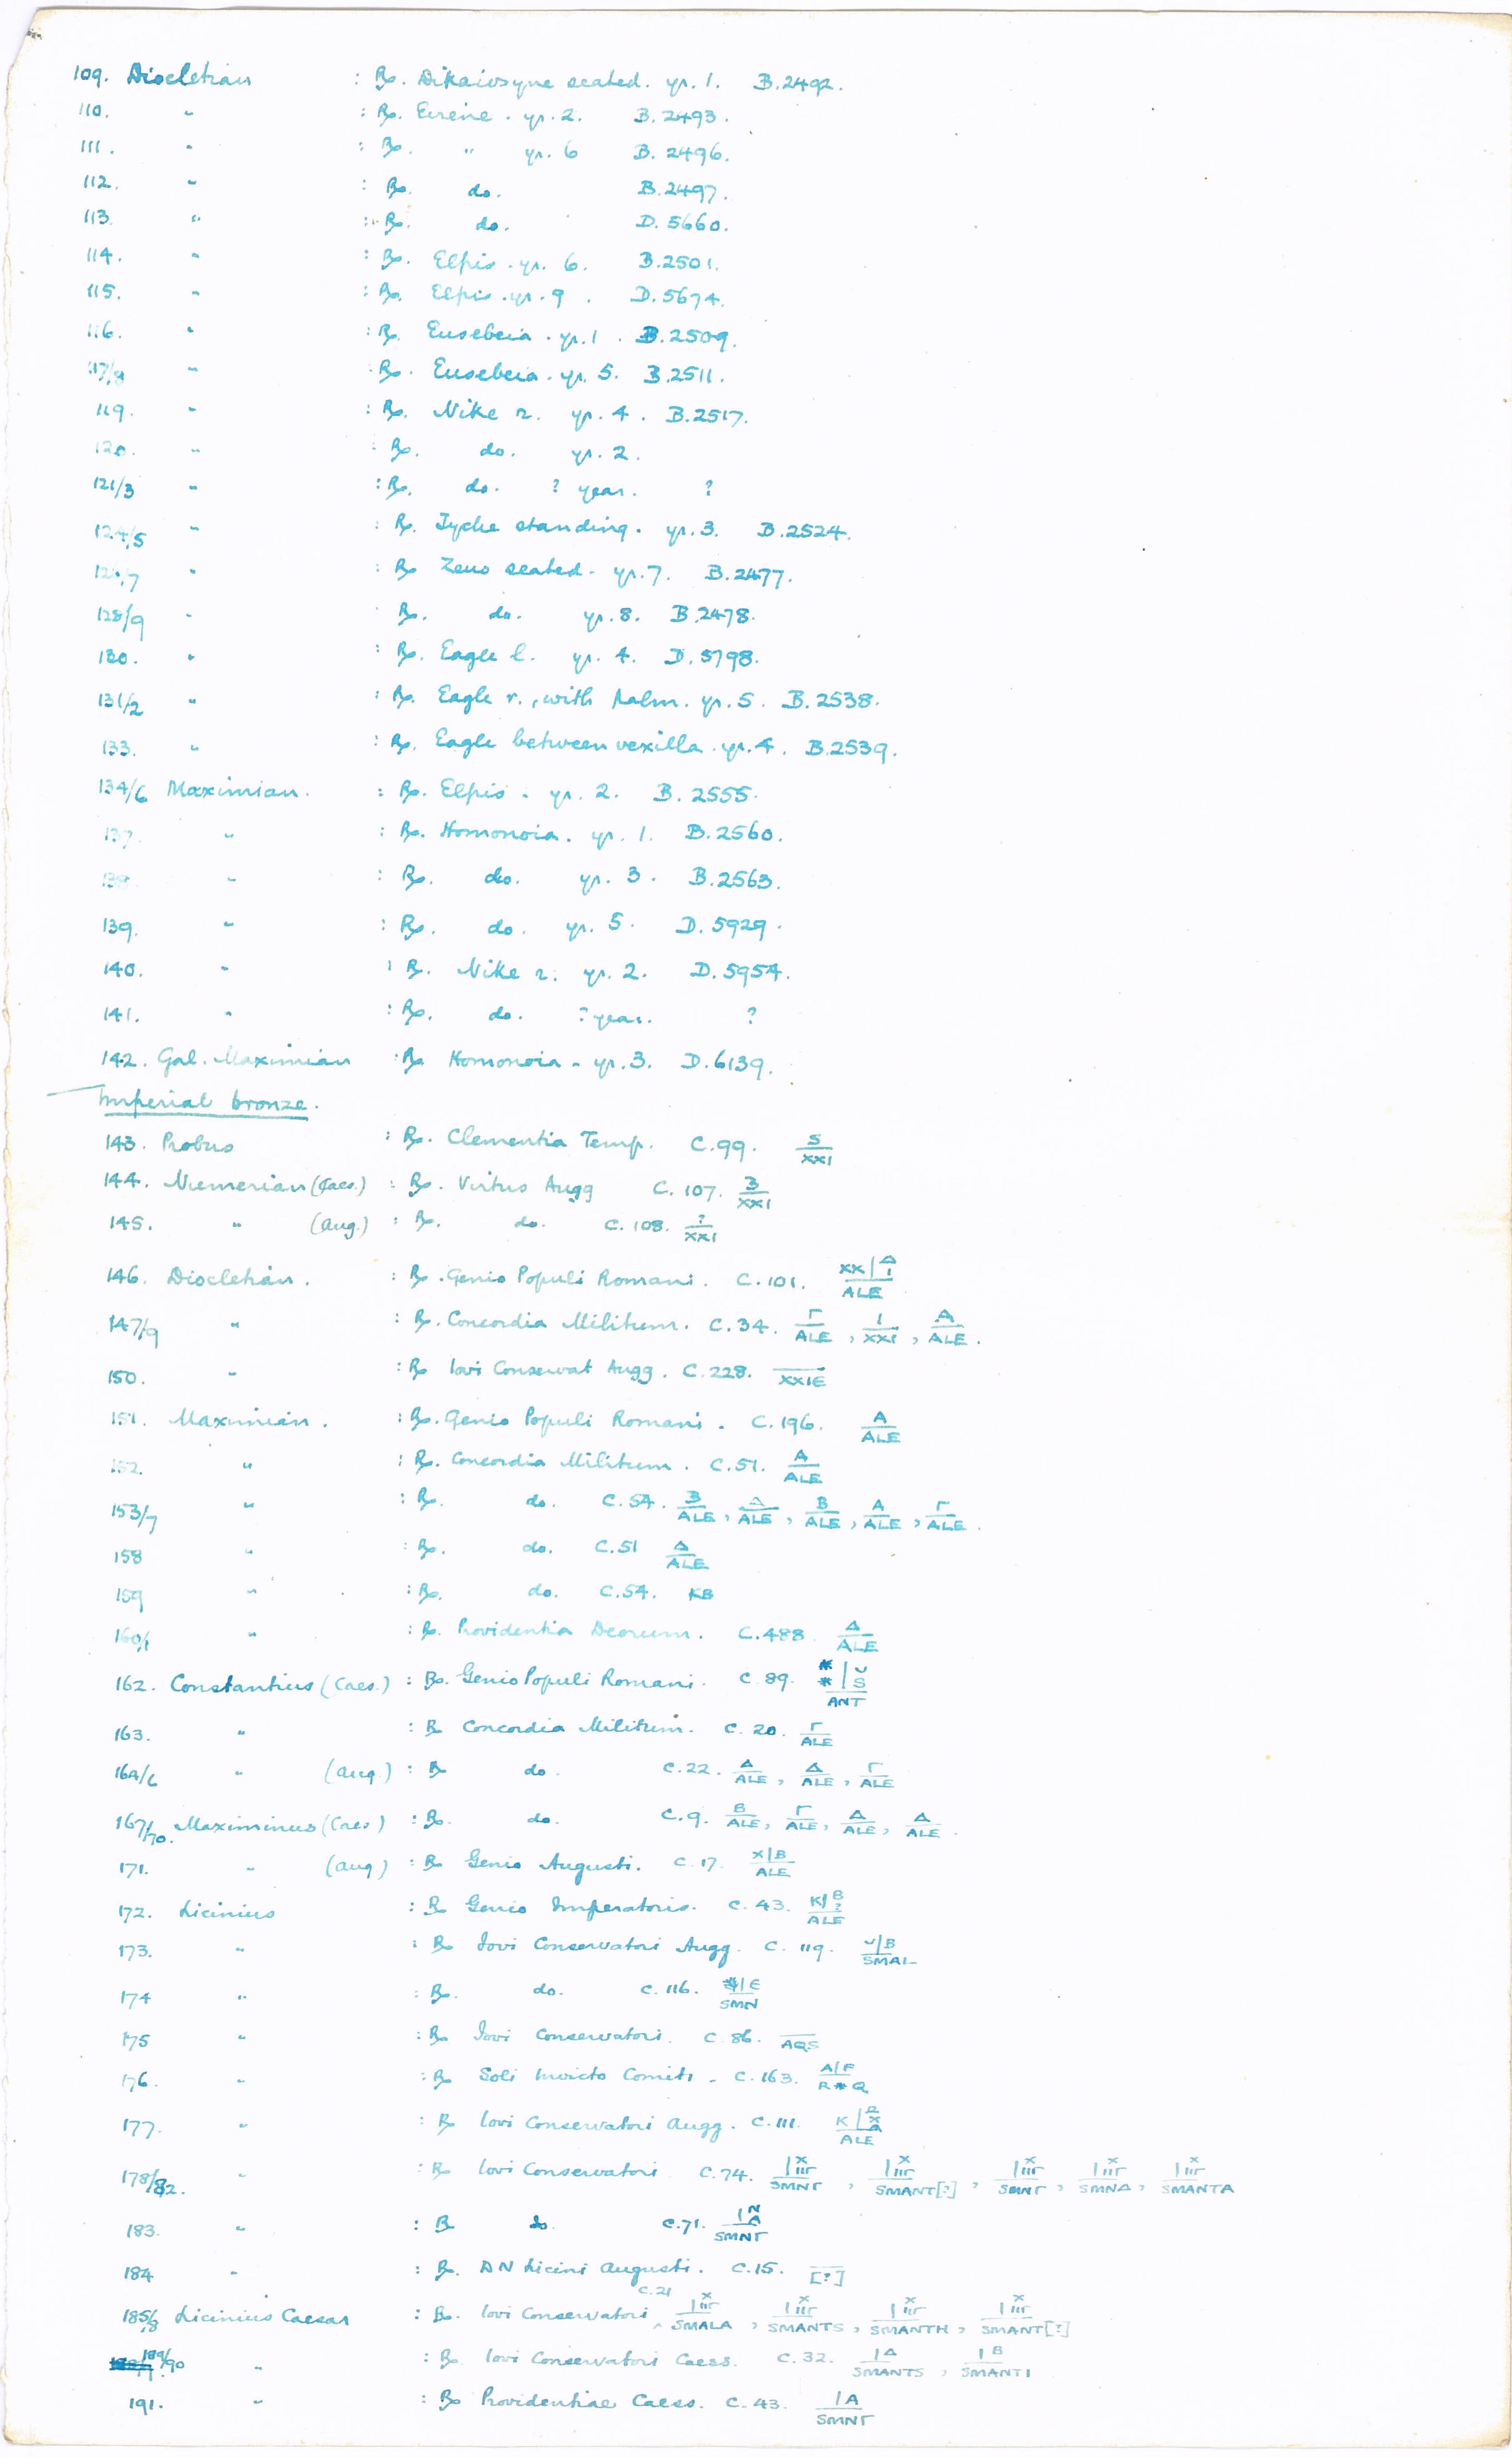 109. Diocletian : Rx. Dikaiosyne seated. yr. 1. B.2492.
110. " : Rx. Eirene. yr. 2. B.2493.
111. " : Rx. " yr. 6 B.2496.
112. " : Rx. do. B.2497.
113. " : Rx. do. D.5660.
114. " : Rx. Elpis. yr. 6. B.2501.
115. " : Rx. Elpis. yr. 9. D.5674.
116. " : Rx. Eusebeia. yr. 1. B.2509.
117/8 " : Rx. Eusebeia. yr. 5. B.2511.
119. " : Rx. Nike r. yr. 4. B.2517.
120. " : Rx. do. yr. 2.
121/3 " : Rx. do. ? year. ?
124/5 " : Rx. Tyche standing. yr. 3. B.2524.
126/7 " : Rx Zeus seated. yr. 7. B.2477.
128/9 " : Rx. do. yr. 8. B.2478.
130. " : Rx. Eagle l. yr. 4. D.5798.
131/2 " : Rx. Eagle r., with palm. yr. 5. B.2538.
133. " : Rx. Eagle between vexilla. yr. 4. B.2539.
134/6 Maximian. : Rx. Elpis. yr. 2. B.2555.
137. " : Rx. Homonoia. yr. 1. B.2560.
138. " : Rx. do. yr. 3. B.2563.
139. " : Rx. do. yr. 5. D.5929.
140. " : Rx. Nike r. yr. 2. D.5954.
141. " : Rx. do. ? year. ?
142. Gal. Maximian : Rx Homonoia. yr. 3. D.6139.
Imperial bronze.
143. Probus : Rx. Clementia Temp. C.99. S/XXI
144. Numerian (Caes.) : Rx. Virtus Augg C.107. B/XXI
145. " (Aug.) : Rx. do. C.108. ?/XXI
146. Diocletian. : Rx. Genio Populi Romani. C.101. XX|Δ I/ALE
147/9 " : Rx. Concordia Militum. C.34. Γ/ALE, I/XXI, A/ALE.
150. " : Rx Iovi Conservat Augg. C.228. XXIE
151. Maximian. : Rx. Genio Populi Romani. C.196. A/ALE
152. " : Rx. Concordia Militum. C.51. A/ALE
153/7 " : Rx. do. C.54. B/ALE, Δ/ALE, B/ALE, A/ALE, Γ/ALE.
158 " : Rx. do. C.51 Δ/ALE
159 " : Rx. do. C.54. KB
160/1 " : Rx. Providentia Deorum. C.488. Δ/ALE
162. Constantius (Caes.) : Rx. Genio Populi Romani. C.89. * *|∪ S/ANT
163. " : Rx Concordia Militum. C.20. Γ/ALE
164/6 " (Aug.) : Rx do. C.22. Δ/ALE, Δ/ALE, Γ/ALE
167/70. Maximinus (Caes) : Rx. do. C.9. B/ALE, Γ/ALE, Δ/ALE, Δ/ALE.
171. " (Aug) : Rx Genio Augusti. C.17. X|B/ALE
172. Licinius : Rx Genio Imperatoris. C.43. K|B ?/ALE
173. " : Rx Iovi Conservatori Augg. C.119. ∪|B/SMAL
174 " : Rx. do. C.116. *|E/SMN
175 " : Rx Iovi Conservatori. C.86. AQS
176. " : Rx Soli Invicto Comiti. C.163. A|F/R*Q
177. " : Rx Iovi Conservatori Augg. C.111. K|X A/ALE
178/82. " : Rx Iovi Conservatori C.74. |X IIΓ/SMNΓ, |X IIΓ/SMANT[?], |X IIΓ/SMNΓ, |X IIΓ/SMNΔ, |X IIΓ/SMANTA
183. " : Rx do. C.71. |N A/SMNΓ
184 " : Rx. DN Licini Augusti. C.15. [?]
185/8 Licinius Caesar : Rx. Iovi Conservatori C.21 |X IIΓ/SMALA, |X IIΓ/SMANTS, |X IIΓ/SMANTH, |X IIΓ/SMANT[?]
189/90 " : Rx. Iovi Conservatori Caess. C.32. |Δ/SMANTS, |B/SMANTI
191. " : Rx Providentiae Caess. C.43. |A/SMNΓ